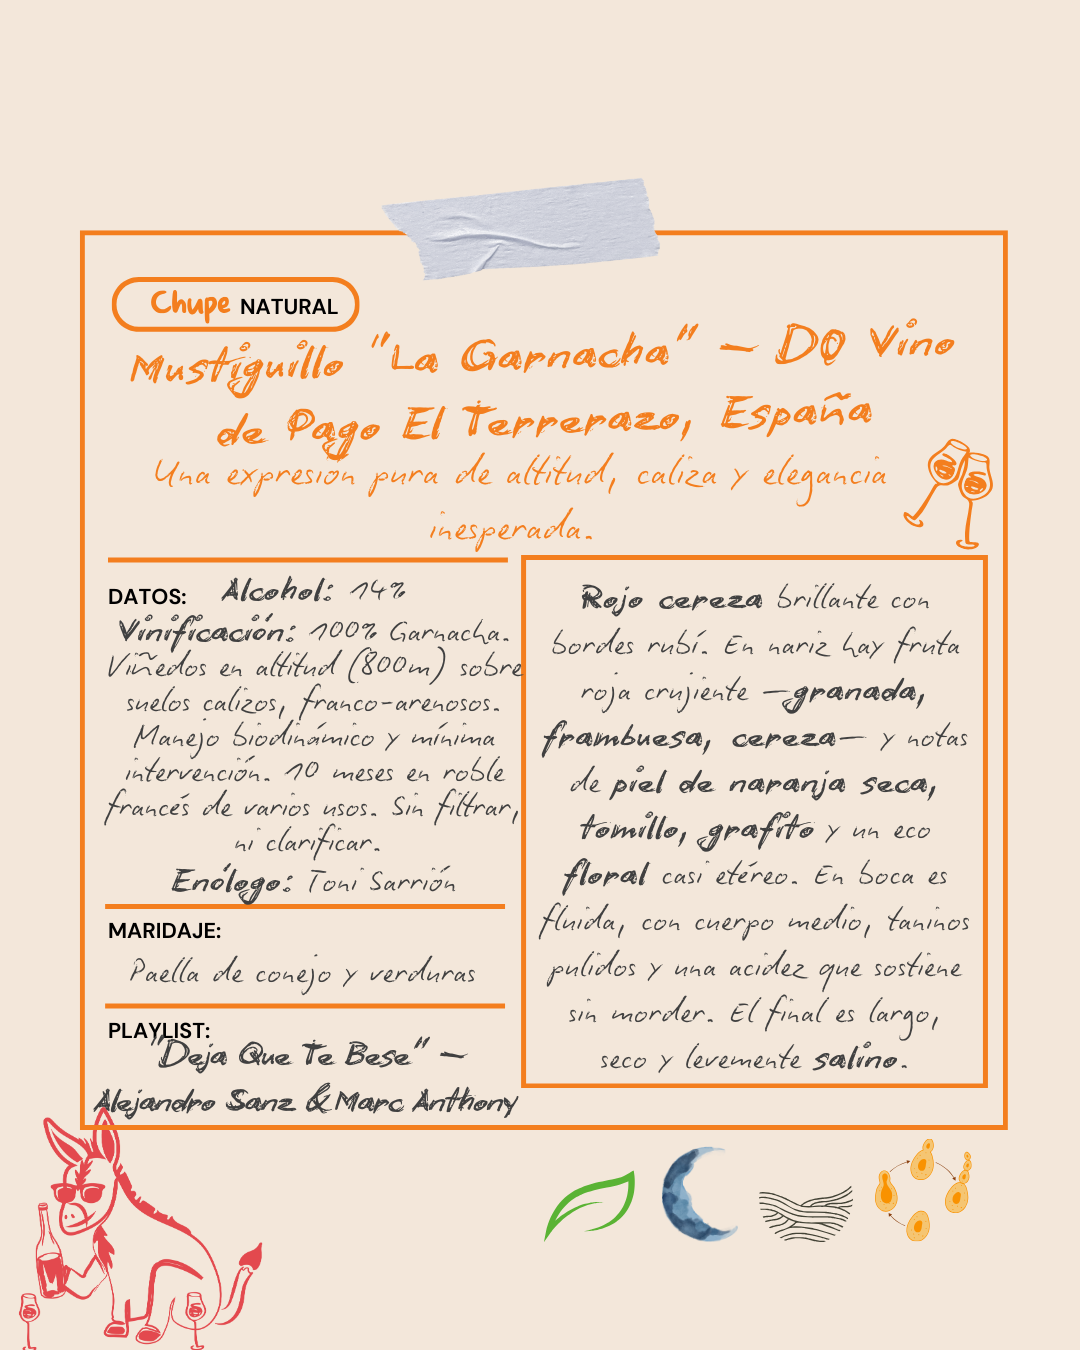 Chupe NATURAL
Mustiguillo "La Garnacha" – DO Vino
de Pago El Terrerazo, España
Una expresión pura de altitud, caliza y elegancia
inesperada.
DATOS: Alcohol: 14%
Vinificación: 100% Garnacha.
Viñedos en altitud (800m) sobre
suelos calizos, franco-arenosos.
Manejo biodinámico y mínima
intervención. 10 meses en roble
francés de varios usos. Sin filtrar,
ni clarificar.
Enólogo: Toni Sarrión
MARIDAJE:
Paella de conejo y verduras
PLAYLIST:
"Deja Que Te Bese" –
Alejandro Sanz & Marc Anthony
Rojo cereza brillante con
bordes rubí. En nariz hay fruta
roja crujiente —granada,
frambuesa, cereza— y notas
de piel de naranja seca,
tomillo, grafito y un eco
floral casi etéreo. En boca es
fluida, con cuerpo medio, taninos
pulidos y una acidez que sostiene
sin morder. El final es largo,
seco y levemente salino.